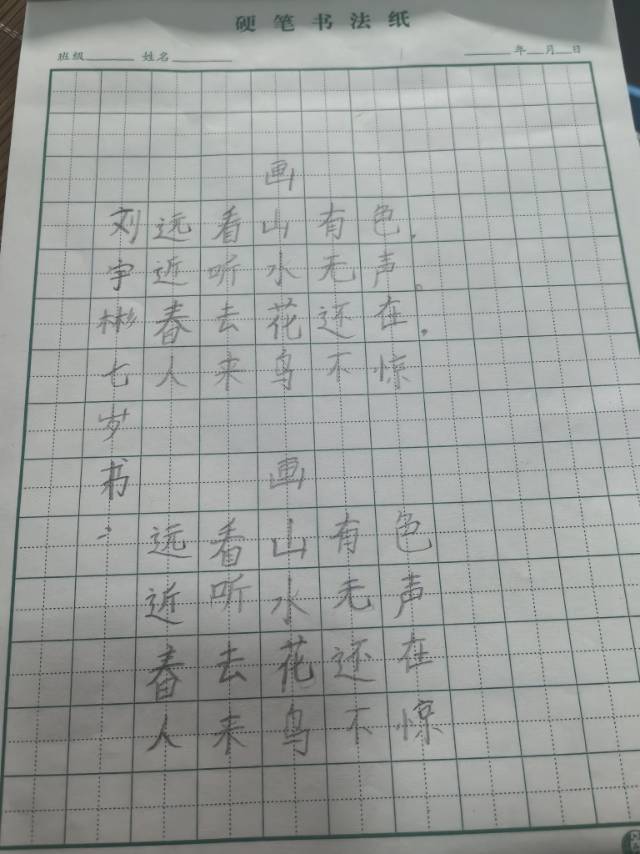 硬笔书法纸
班级 姓名 年 月 日
画
刘远看山有色.
宇近听水无声。
彬春去花还在.
七人来鸟不惊
岁
书 画
远看山有色
近听水无声
春去花还在
人来鸟不惊